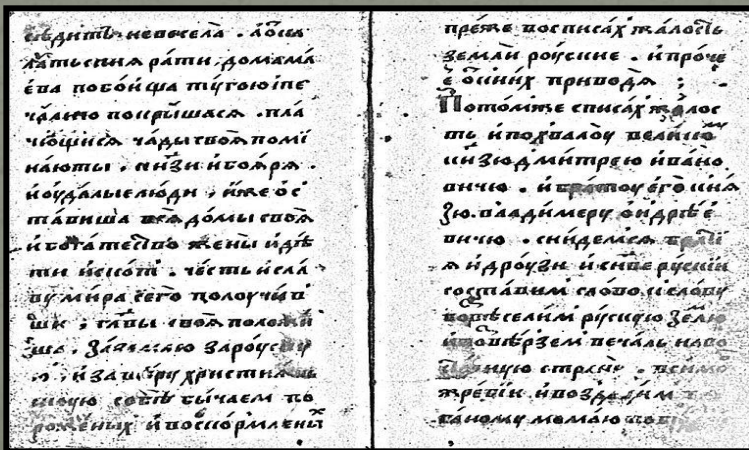 сѣдитъ невесела . а ѿ ка
латьския рати до мама
ева побоища тугою і пе
чалию покрышася . пла
чющися чады своя помі
наюты . кнзи и бояря .
и оудалые люди , иже ос
тавиша вся домы своя
и богатество жены и дѣ
ти и скоті . честь и сла
ву мира сего полоучив
ши ; главы своя положи
ша . за землю за роускую
и за вѣру христиань
скую собѣ бы чаем по
роженых и воскормлены
преже восписах жалость
земли роуские . и проче
е ѿ кних приводя ;
Потом же списах жалос
ть и похвалоу великому
кнзю дмитрею ивано
вичю . и братоу его кня
зю владимеру ондрѣе
вичю . снидемся браті
я и дроузи и снве рускии
составим слово к слову
возвеселим рускую землю
и возвѣрзем печаль на во
точную страну .
жребіи и воздадим по
ганому момаю